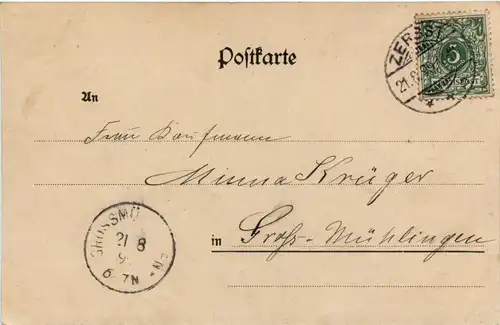 Postkarte
ZERBST
21.8
5
An
Frau Kaufmann
Minna Krüger
in Groß-Mühlingen
GROSSMÜ EN
21 8
9
6-7N